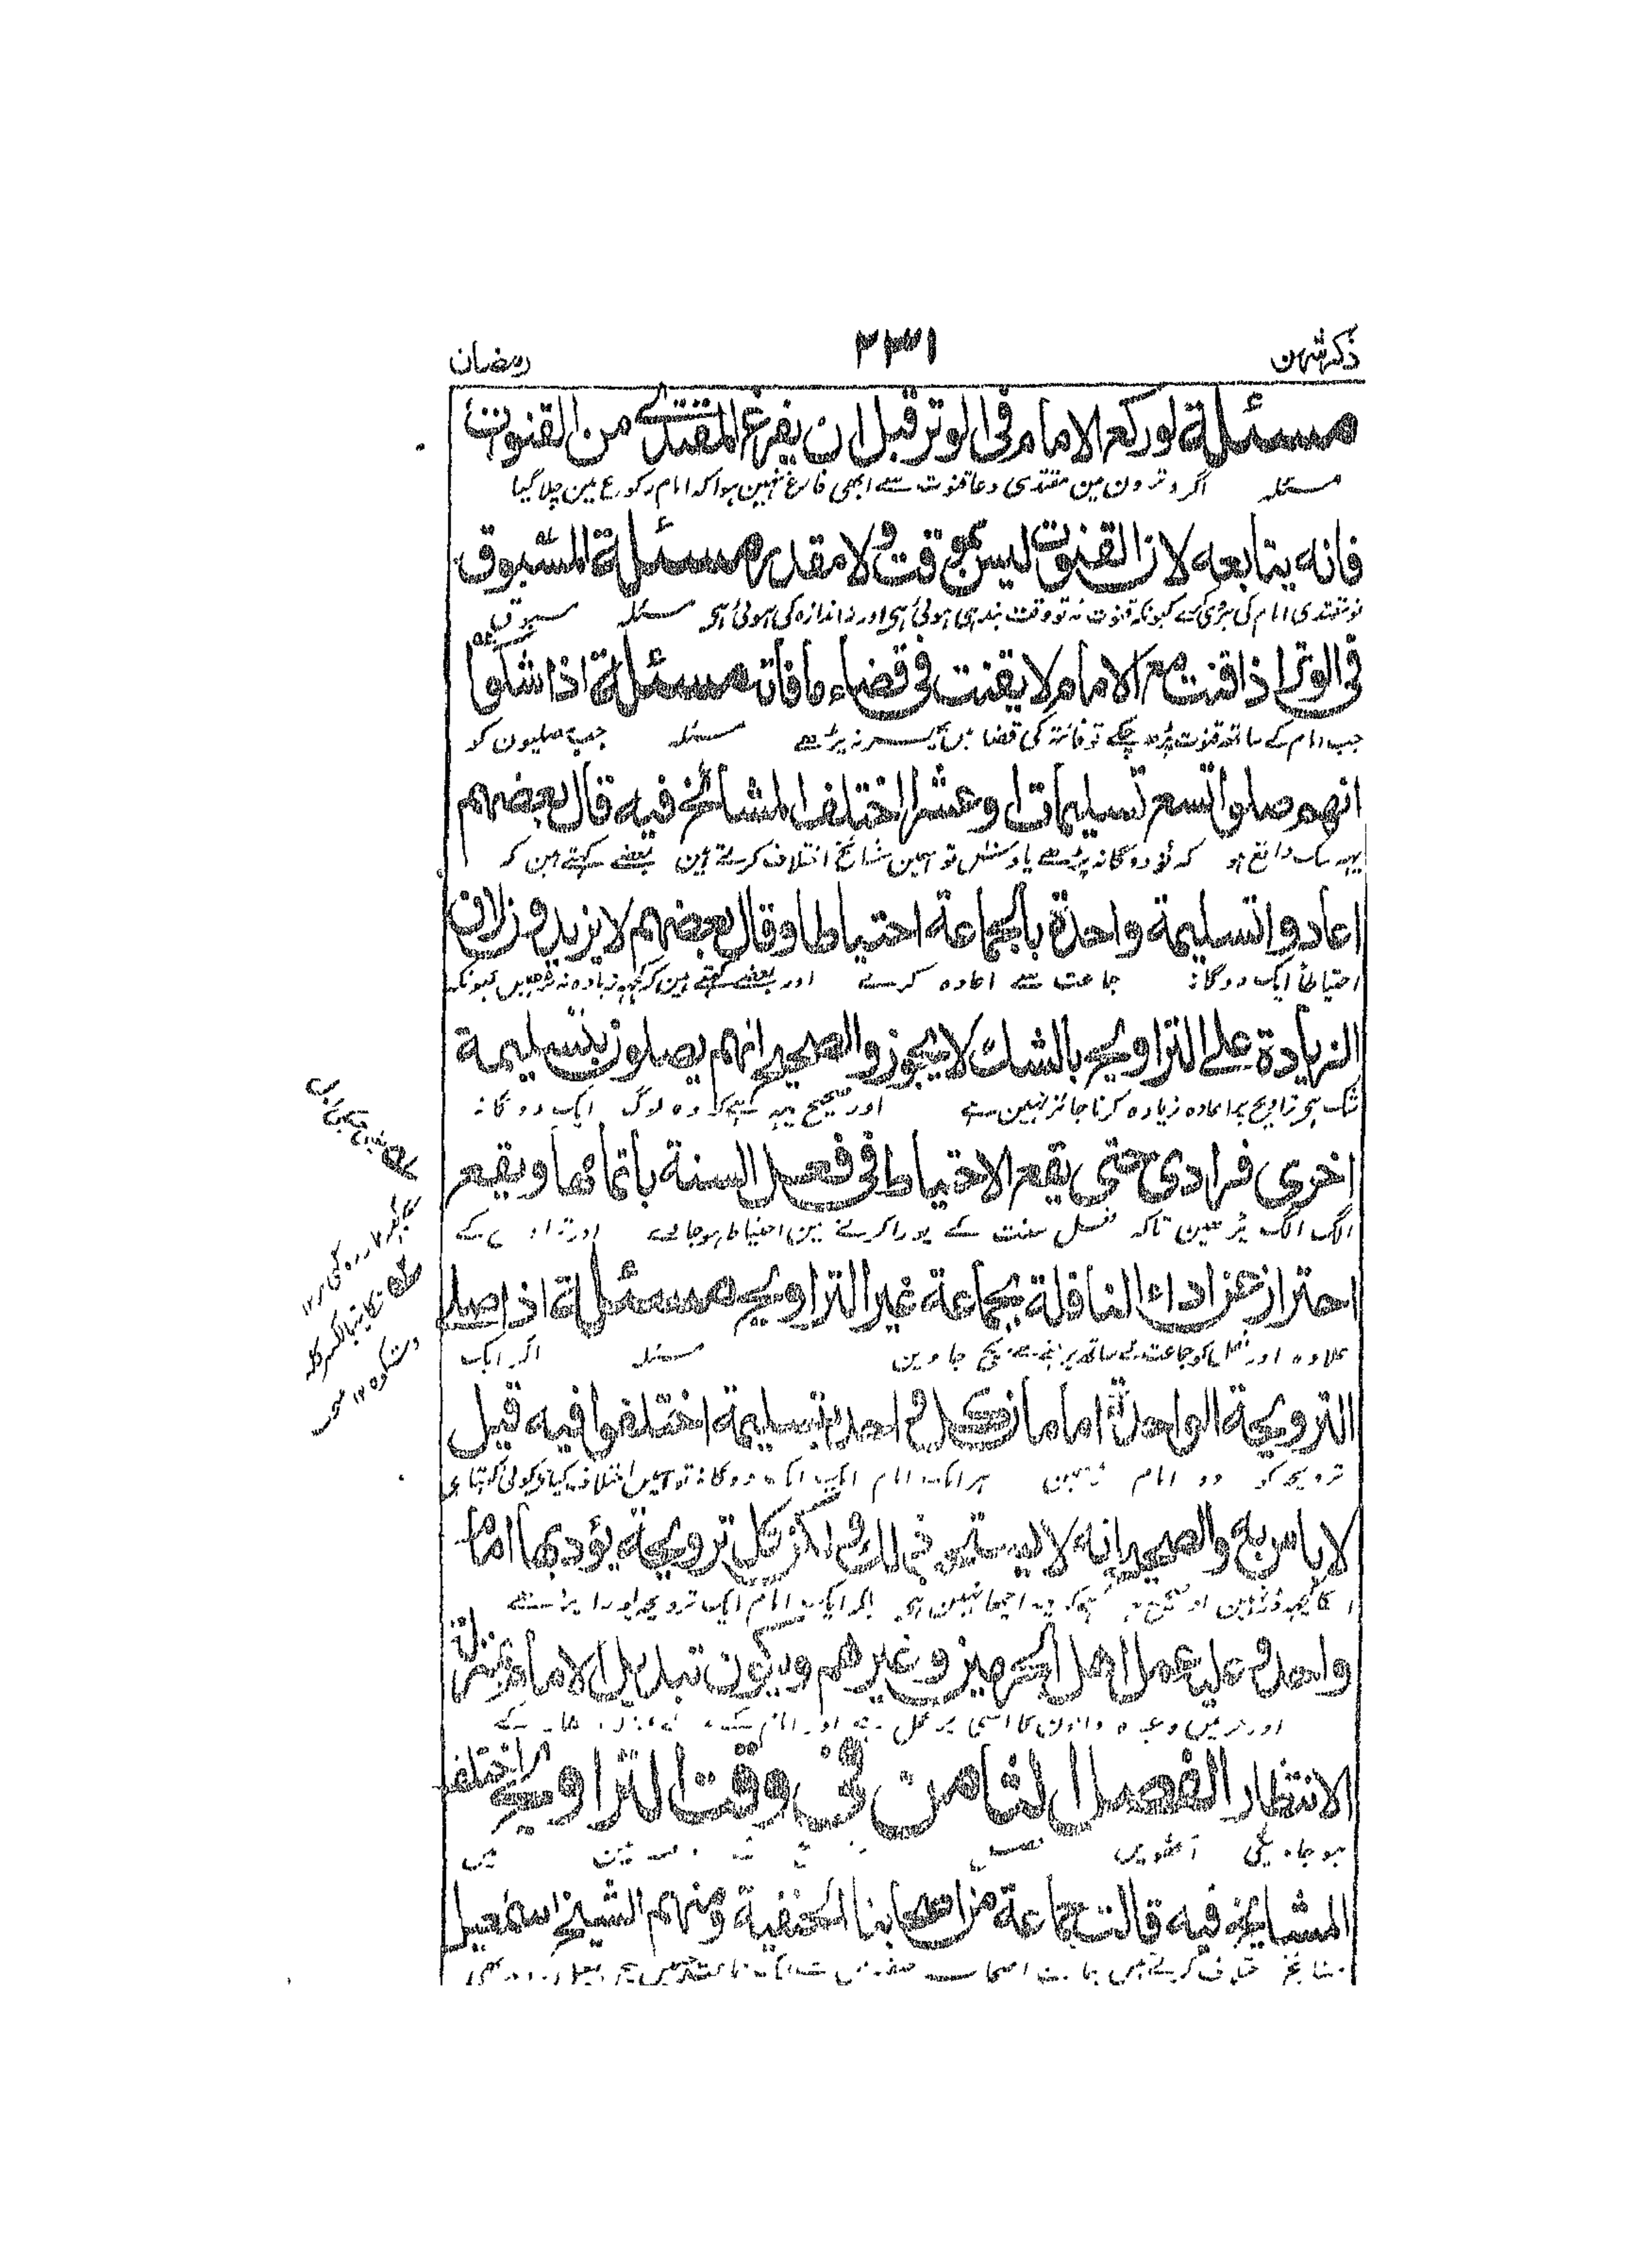 ذکر شهر
۲۳۱
رمضان
مسئلة لو ركع الامام فى الوتر قبل ان يفرغ المقتدى من القنوت
مسئلہ اگر وترون مین مقتدی دعا قنوت سے ابھی فارغ نہین ہوا کہ امام رکوع مین چلا گیا
فانه يتابعه لان القنوت ليس بموقت ولا مقدر مسئلة المسبوق
تو مقتدی امام کی کرے کیونکہ قنوت نہ تو وقت بندہی ہوئی ہی اور نہ اندازہ کی ہوئی ہی مسئلہ مسبوق
فى الوتر اذا قنت مع الامام لا يقنت فى قضاء ما فاته مسئلة اذا شكوا
جب امام کے ساتھ قنوت پڑھ چکے تو فائتہ کی قضا مین پھر نہ پڑھے مسئلہ جب مصلیون کو
انهم صلوا تسع تسليمات او عشرا اختلف المشائخ فيه قال بعضهم
یہہ شک واقع ہو کہ نو دوگانہ پڑھے یا دس تو اسمین مشائخ اختلاف کرتے ہین بعضے کہتے ہین کہ
اعادوا تسليمة واحدة بالجماعة احتياطا وقال بعضهم لا يزيدون لان
احتیاطاً ایک دوگانہ جماعت سے اعادہ کرے اور بعضے کہتے ہین کہ زیادہ نہ کیونکہ
الزيادة على التراويح بالشك لا يجوز والصحيح انهم يصلون بتسليمة
شک تراویح پر زیادہ کرنا جائز نہین ہے اور صحیح یہہ ہے کہ وہ لوگ ایک دوگانہ
اخرى فرادى حتى يقع الاحتياط فى فعل السنة باتمامها ويقع
الگ الگ پڑھین تاکہ سنت کے پورا کرنے مین احتیاط ہوجاوے اور تراویح کے
احتراز عن اداء النافلة بجماعة غير التراويح مسئلة اذا صلى
علاوہ اور نفل کو جماعت کے ساتھ پڑھنے سے بچ جاوین مسئلہ اگر ایک
الترويحة الواحدة امامان كل واحد بتسليمة اختلفوا فيه قيل
ترویحہ کو دو امام پڑھین ہر ایک امام ایک ایک دوگانہ تو اسمین اختلاف کیا کوئی کہتا ہی
لا باس به والصحيح انه لا يستحب ذلك ولكن كل ترويحة يؤديها امام
اچھا نہین ہی ایک امام ایک ترویحہ پورا پڑھے
واحد وعليه عمل اهل الحرمين وغيرهم ويكون تبديل الامام بمنزلة
اور حرمین وغیرہ والون کا اسی پر عمل ہے اور امام کے
الانتظار الفصل الثامن فى وقت التراويح اختلف
ہو جاویگی آٹھوین فصل مین
المشايخ فيه قالت جماعة من اصحابنا الحنفية ومنهم الشيخ اسمعيل
مشایخ کرتے ہین اصحاب